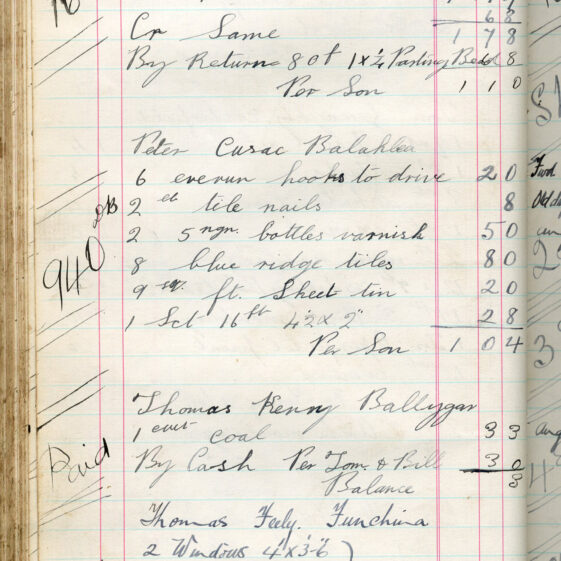 6 8
Cr Same 1 7 8
By Return 80 ft 1 x ¼ Parting Bead 6 8
Per Son 1 1 0
Peter Cusac Balahlea
6 everun hooks to drive 2 0
2 lb tile nails 8
2 5 ngn. bottles varnish 5 0
8 blue ridge tiles 8 0
9 sq. ft. Sheet tin 2 0
1 Sct 16 ft 4½ x 2" 2 8
940 Per Son 1 0 4
Thomas Kenny Ballygar
1 cwt coal 3 3
Paid By Cash Per Tom & Bill 3 0
Balance 3
Thomas Feely. Funchina
2 Windows 4' x 3-6